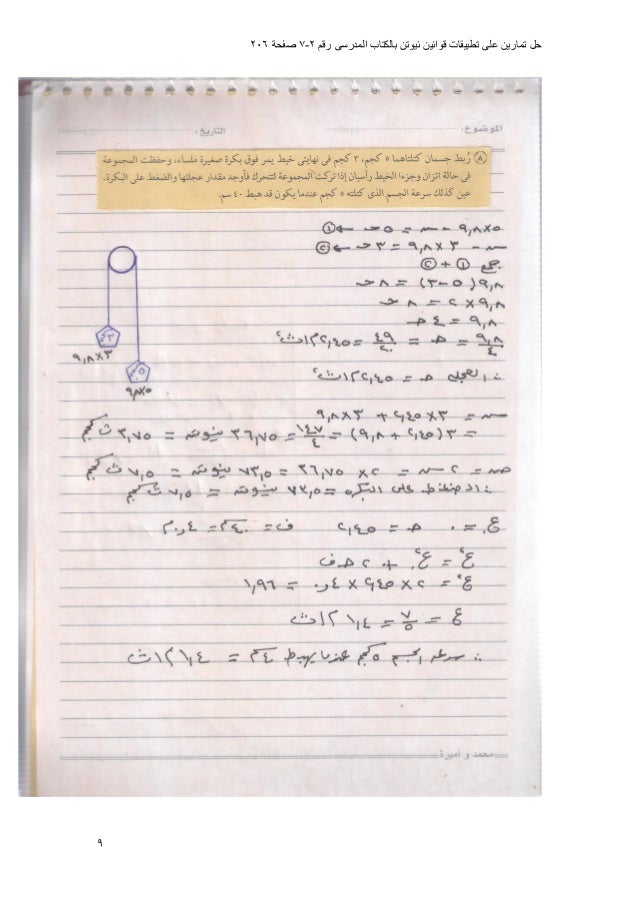 حل تمارين على تطبيقات قوانين نيوتن بالكتاب المدرسى رقم ٢-٧ صفحة ٢٠٦
الموضوع: التاريخ:
٨ رُبط جسمان كتلتاهما ٥ كجم، ٣ كجم فى نهايتى خيط يمر فوق بكرة صغيرة ملساء، وحفظت المجموعة
فى حالة اتزان وجزءا الخيط رأسيان إذا تركت المجموعة لتتحرك فأوجد مقدار عجلتها والضغط على البكرة.
عين كذلك سرعة الجسم الذى كتلته ٥ كجم عندما يكون قد هبط ٤٠ سم.
٩,٨×٥ - سـ = ٥ حـ ← ①
سـ - ٣ × ٩,٨ = ٣ حـ ← ②
جمع ① + ②
٩,٨ (٥-٣) = ٨ حـ
٩,٨ × ٢ = ٨ حـ
٩,٨ = ٤ حـ
٩,٨/٤ = حـ = ٤٩/٢٠ = ٢,٤٥ م/ث²
∴ العجلة حـ = ٢,٤٥ م/ث²
٣
٩,٨×٣
٥
٩,٨×٥
سـ = ٣×٢,٤٥ + ٣×٩,٨
= ٣(٢,٤٥ + ٩,٨) = ١٤٧/٤ = ٣٦,٧٥ نيوتن = ٣,٧٥ ث كجم
ضـ = ٢ سـ = ٢ × ٣٦,٧٥ = ٧٣,٥ نيوتن = ٧,٥ ث كجم
∴ الضغط على البكرة = ٧٣,٥ نيوتن = ٧,٥ ث كجم
ع. = ٠ حـ = ٢,٤٥ ف = ٤٠ سم = ٠,٤ م
ع² = ع.² + ٢ حـ ف
ع² = ٢ × ٢,٤٥ × ٠,٤ = ١,٩٦
ع = ٧/٥ = ١,٤ م/ث
∴ سرعة الجسم ٥ كجم عندما يهبط ٤٠ سم = ١,٤ م/ث
محمد و أميرة
٩